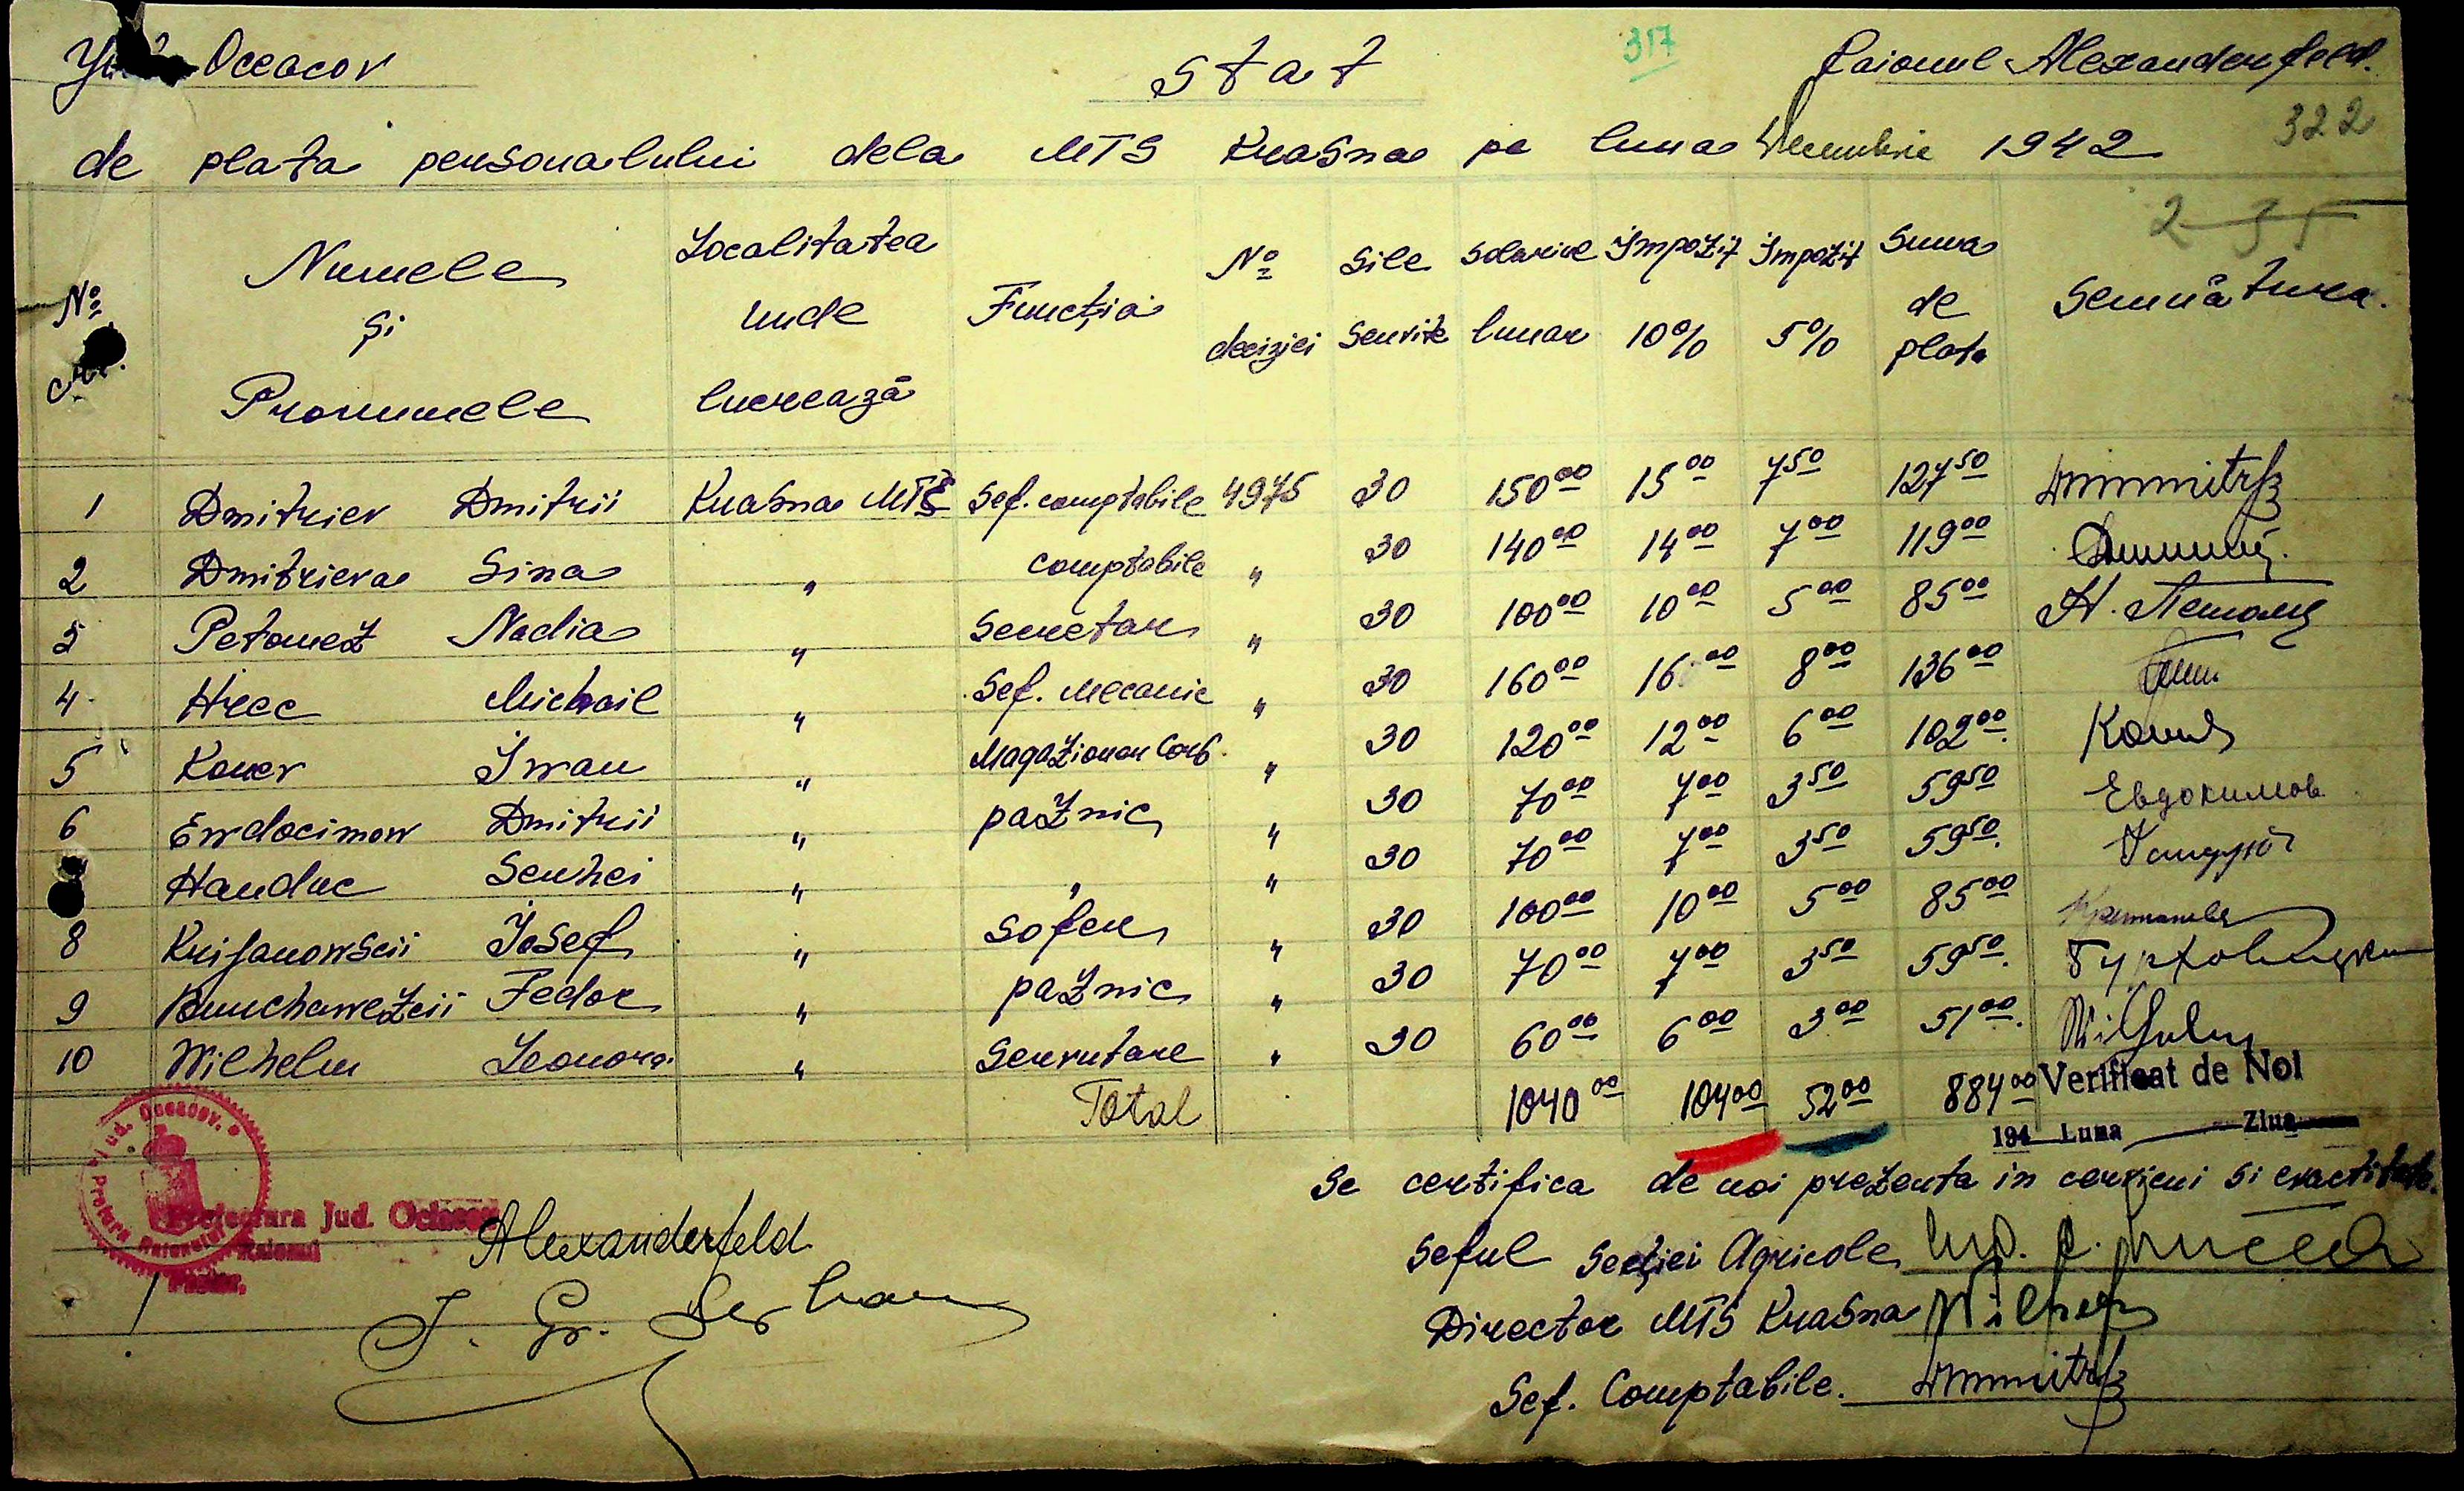 Oceacov
Stat
317
Raionul Alexanderfeld.
322
de plata personalului dela MTS Krasna pe luna Decembrie 1942
2-35
№ crt. Numele și Pronumele Localitatea unde lucrează Funcția № deciziei Sile Servite Solariul lunar Impozit 10% Impozit 5% Suma de plata Semnătura.
1 Dmitriev Dmitrii Krasna MTS Sef. comptabile 4975 30 150 00 15 00 7 50 127 50
2 Dmitrieva Sina " comptabile " 30 140 00 14 00 7 00 119 00
3 Petomez Nadia " Secretar " 30 100 00 10 00 5 00 85 00
4 Hrec Michail " Sef. Mecanic " 30 160 00 16 00 8 00 136 00
5 Konev Iwan " Magazioner Carb. " 30 120 00 12 00 6 00 102 00
6 Ewdocimow Dmitrii " paznic " 30 70 00 7 00 3 50 59 50 Евдокимов
Handuc Serhei " " " 30 70 00 7 00 3 50 59 50
8 Krijanowscii Josef " Sofer " 30 100 00 10 00 5 00 85 00
9 Fedor " paznic " 30 70 00 7 00 3 50 59 50
10 Wilhelm Leonora " Servutare " 30 60 00 6 00 3 00 51 00 Wilhelm
Total 1040 00 104 00 52 00 884 00
Verificat de Noi
194 Luna Ziua
Se certifica de noi prezenta in servieni si exactitate.
Prefectura Jud. Oceacov
Raionul
Alexanderfeld
Seful Secției Agricole
Director MTS Krasna Wilhelm
Sef. Comptabile.